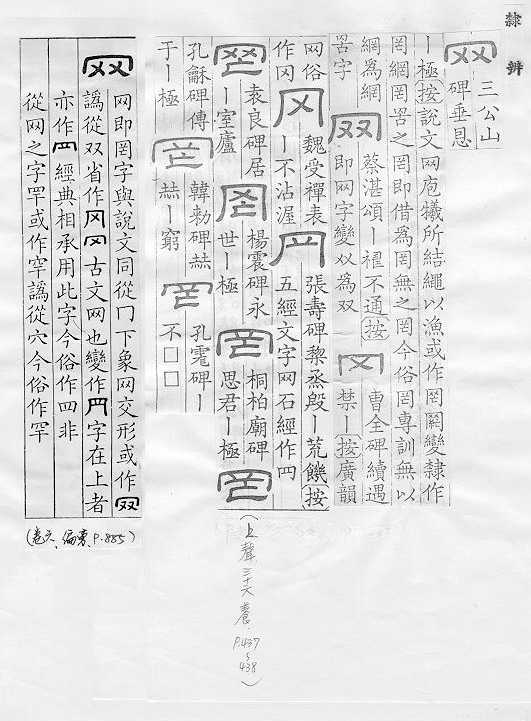 隸辨
网 三公山
碑垂恩
丨極按說文网庖犧所結繩以漁或作罔變隸作
罔網罟之罔即借為罔無之罔今俗罔專訓無以
網為網 蔡湛頌丨不通按 曹全碑續遇
罟字 即网字變㸚為双 禁丨按廣韻
网俗 魏受禪表 張壽碑黎烝殷丨荒饑按
作冈 丨不沾渥 五經文字网石經作罓
袁良碑居 楊震碑永 桐柏廟碑
丨室廬 世丨極 思君丨極
孔龢碑傳 韓勑碑赫 孔宙碑丨
于丨極 赫丨窮 不□□
(上聲三十六養.P.437~438)
网
网即罔字與說文同從冂下象网交形或作网
譌從双省作冈罓古文网也變作罓字在上者
亦作罒經典相承用此字今俗作四非
從网之字罕或作罕譌從穴今俗作罕
(卷六、偏旁、P.885)